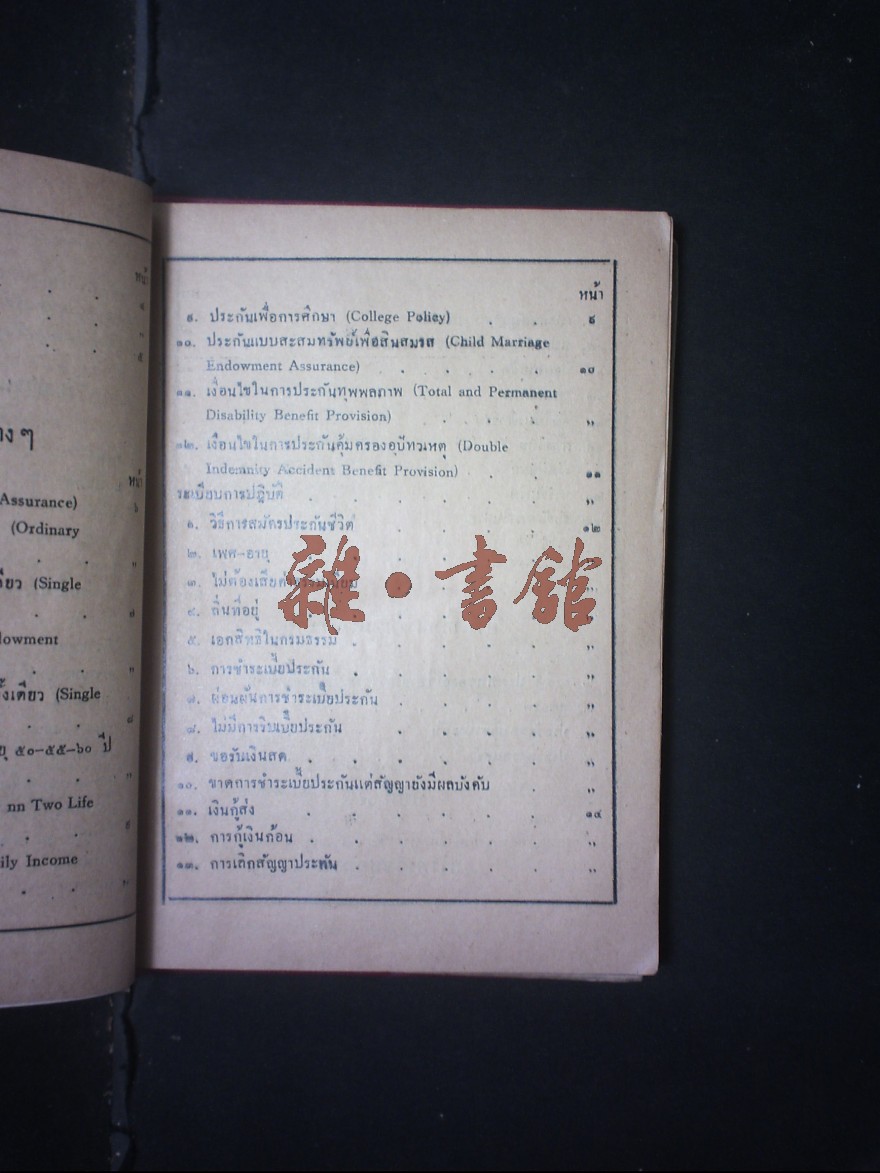 หน้า
๕
างๆ
หน้า
๖
Assurance)
(Ordinary
„
(Single
๗
dowment
„
รั้งเดียว (Single
๘
ยุ ๕๐-๕๕-๖๐ ปี
„
nn Two Life
๙
ily Income
„
หน้า
๙. ประกันเพื่อการศึกษา (College Policy) . . ๙
๑๐. ประกันแบบสะสมทรัพย์เพื่อสินสมรส (Child Marriage
Endowment Assurance) . . . . . . ๑๐
๑๑. เงื่อนไขในการประกันทุพพลภาพ (Total and Permanent
Disability Benefit Provision) . . . . „
๑๒. เงื่อนไขในการประกันคุ้มครองอุบัทวเหตุ (Double
Indemnity Accident Benefit Provision) . . ๑๑
ระเบียบการปฏิบัติ . . . . . . „
๑. วิธีการสมัครประกันชีวิต . . . . . ๑๒
๒. เพศ-อายุ . . . . . „
๓. ไม่ต้องเสียค่าธรรมเนียม . . . . „
๔. ถิ่นที่อยู่ . . . . . „
๕. เอกสิทธิ์ในกรมธรรม์ . . . . . „
๖. การชำระเบี้ยประกัน . . . . . „
๗. ผ่อนผันการชำระเบี้ยประกัน . . . . „
๘. ไม่มีการริบเบี้ยประกัน . . . . „
๙. ขอรับเงินสด . . . . . „
๑๐. ขาดการชำระเบี้ยประกันแต่สัญญายังมีผลบังคับ . „
๑๑. เงินกู้ส่ง . . . . . . ๑๔
๑๒. การกู้เงินก้อน . . . . . . „
๑๓. การเลิกสัญญาประกัน . . . . . „
雜·書館